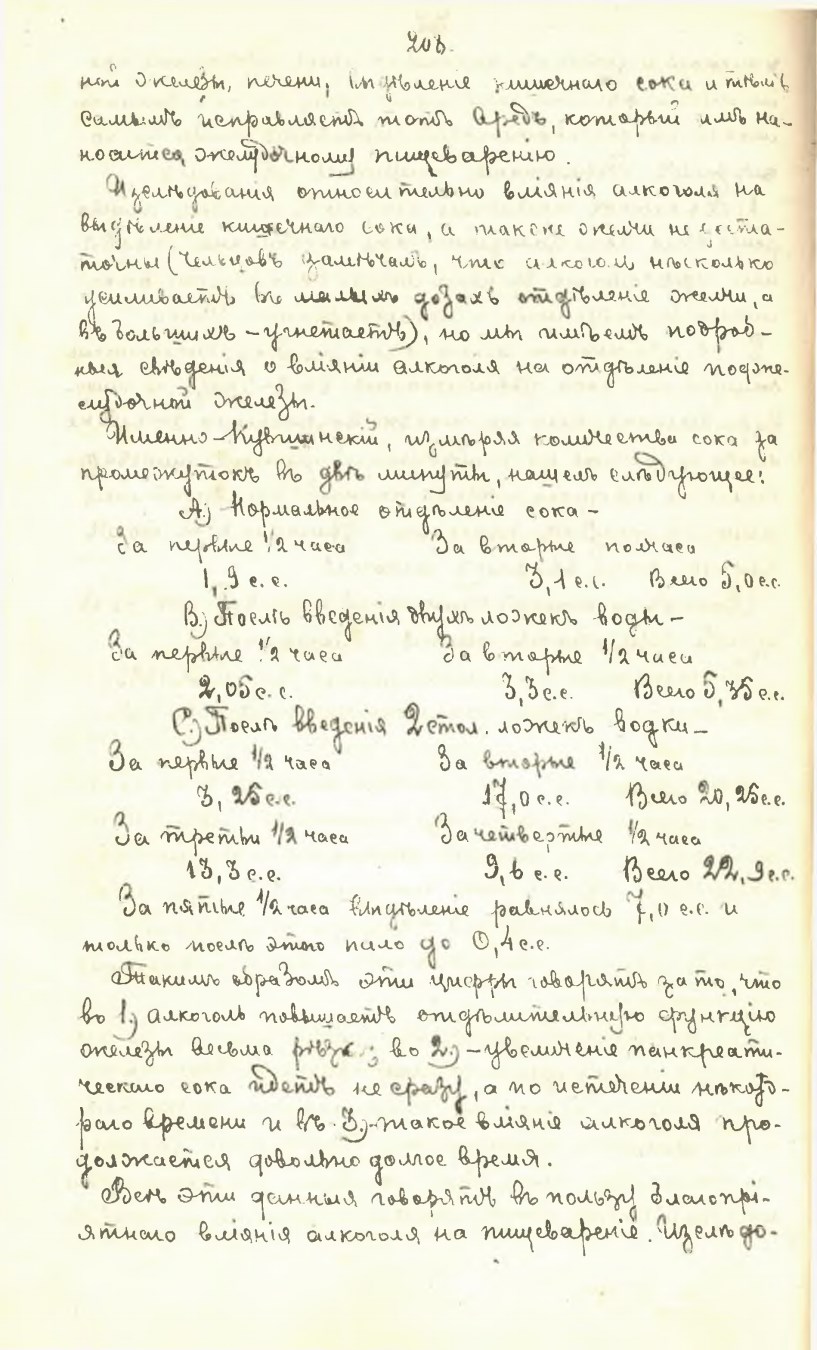 203.
ной железы, печени, выдѣленіе кишечнаго сока и тѣмъ
самымъ исправляетъ тотъ вредъ, который имъ на-
носится желудочному пищеваренію.
Изслѣдованія относительно вліянія алкоголя на
выдѣленіе кишечнаго сока, а также желчи не доста-
точны (Чельцовъ замѣчалъ, что алкоголь нѣсколько
усиливаетъ въ малыхъ дозахъ отдѣленіе желчи, а
въ большихъ – угнетаетъ), но мы имѣемъ подроб-
ныя свѣденія о вліяніи алкоголя на отдѣленіе подже-
лудочной железы.
Именно – Кувшинскій, измѣряя количества сока за
промежутокъ въ двѣ минуты, нашелъ слѣдующее:
А.) Нормальное отдѣленіе сока –
За первые 1/2 часа За вторые полчаса
1,9 с.с. 3,1 с.с. Всего 5,0 с.с.
В.) Послѣ введенія двухъ ложекъ воды –
За первые 1/2 часа За вторые 1/2 часа
2,05 с.с. 3,3 с.с. Всего 5,35 с.с.
С.) Послѣ введенія 2 стол. ложекъ водки –
За первые 1/2 часа За вторые 1/2 часа
3,25 с.с. 17,0 с.с. Всего 20,25 с.с.
За третьи 1/2 часа За четвертые 1/2 часа
13,3 с.с. 9,6 с.с. Всего 22,9 с.с.
За пятые 1/2 часа выдѣленіе равнялось 7,0 с.с. и
только послѣ этого пало до 0,4 с.с.
Такимъ образомъ эти цифры говорятъ за то, что
во 1.) алкоголь повышаетъ отдѣлительную функцію
железы весьма рѣзко; во 2.) – увеличеніе панкреати-
ческаго сока идетъ не сразу, а по истеченіи нѣкото-
раго времени и въ 3.) – такое вліяніе алкоголя про-
должается довольно долгое время.
Всѣ эти данныя говорятъ въ пользу благопрі-
ятнаго вліянія алкоголя на пищевареніе. Изслѣдо-